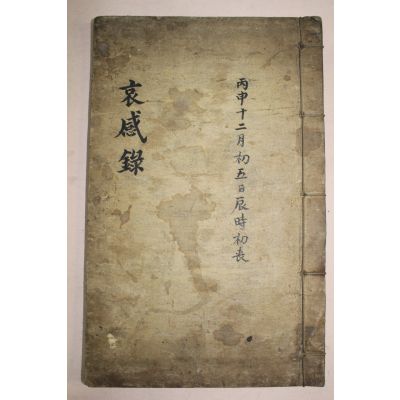 哀感錄
丙申十二月初五日辰時初喪